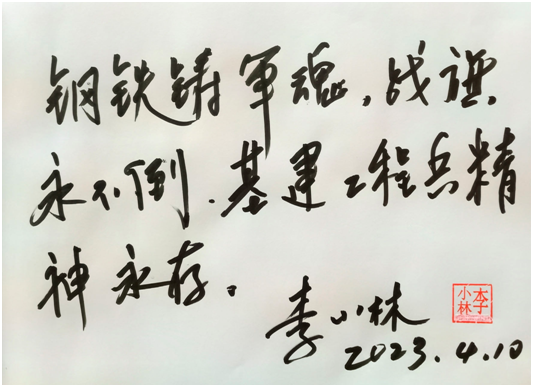 钢铁铸军魂,战旗
永不倒.基建工程兵精
神永存。
李小林
李小林
2023.4.10